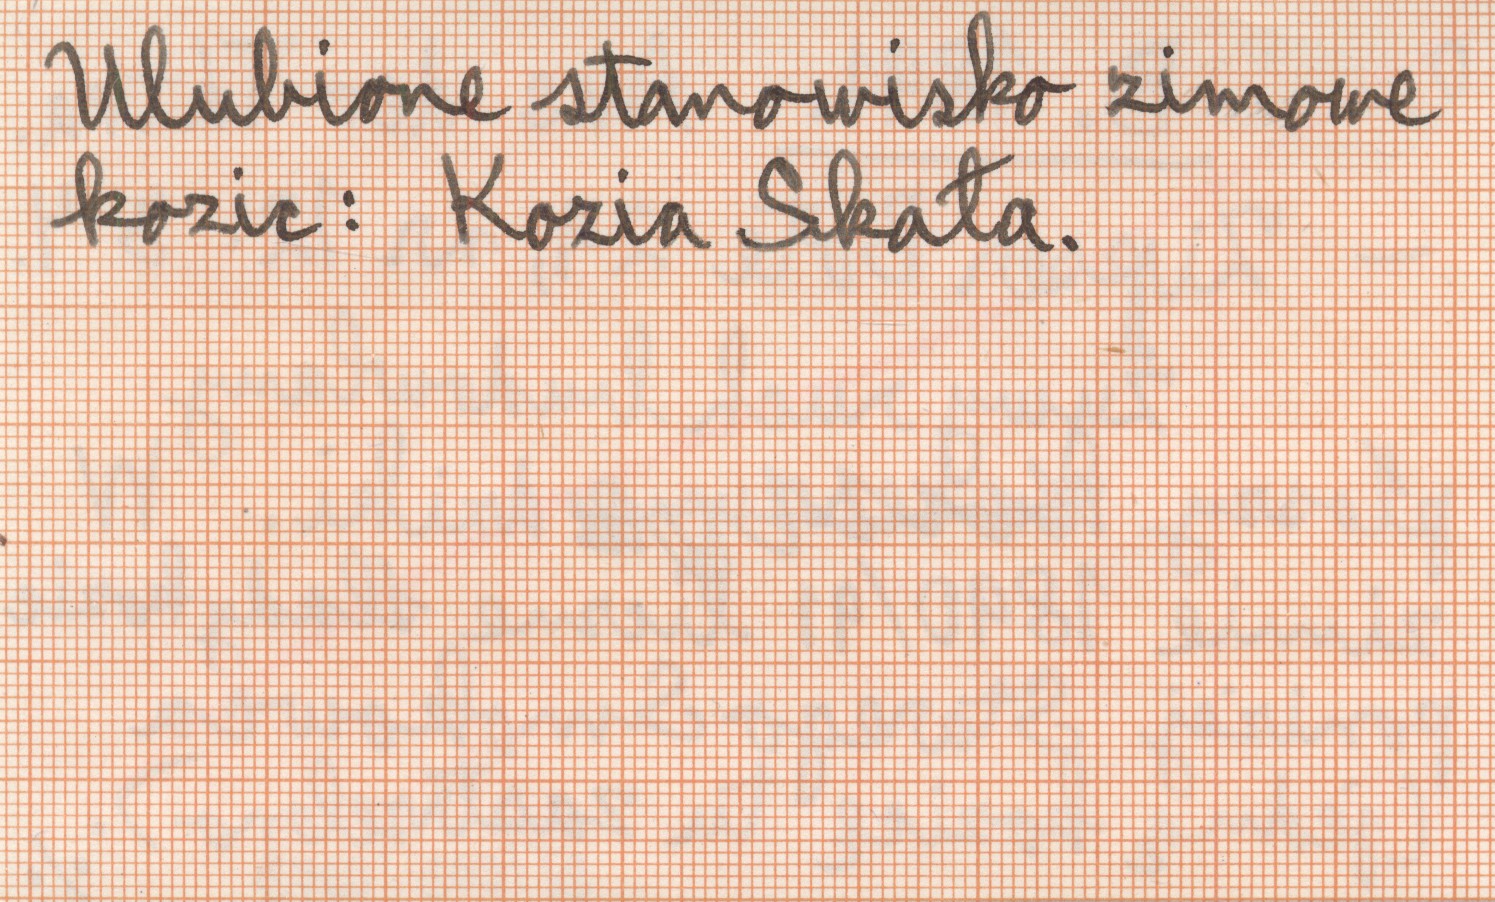 Ulubione stanowisko zimowe
kozic: Kozia Skała.